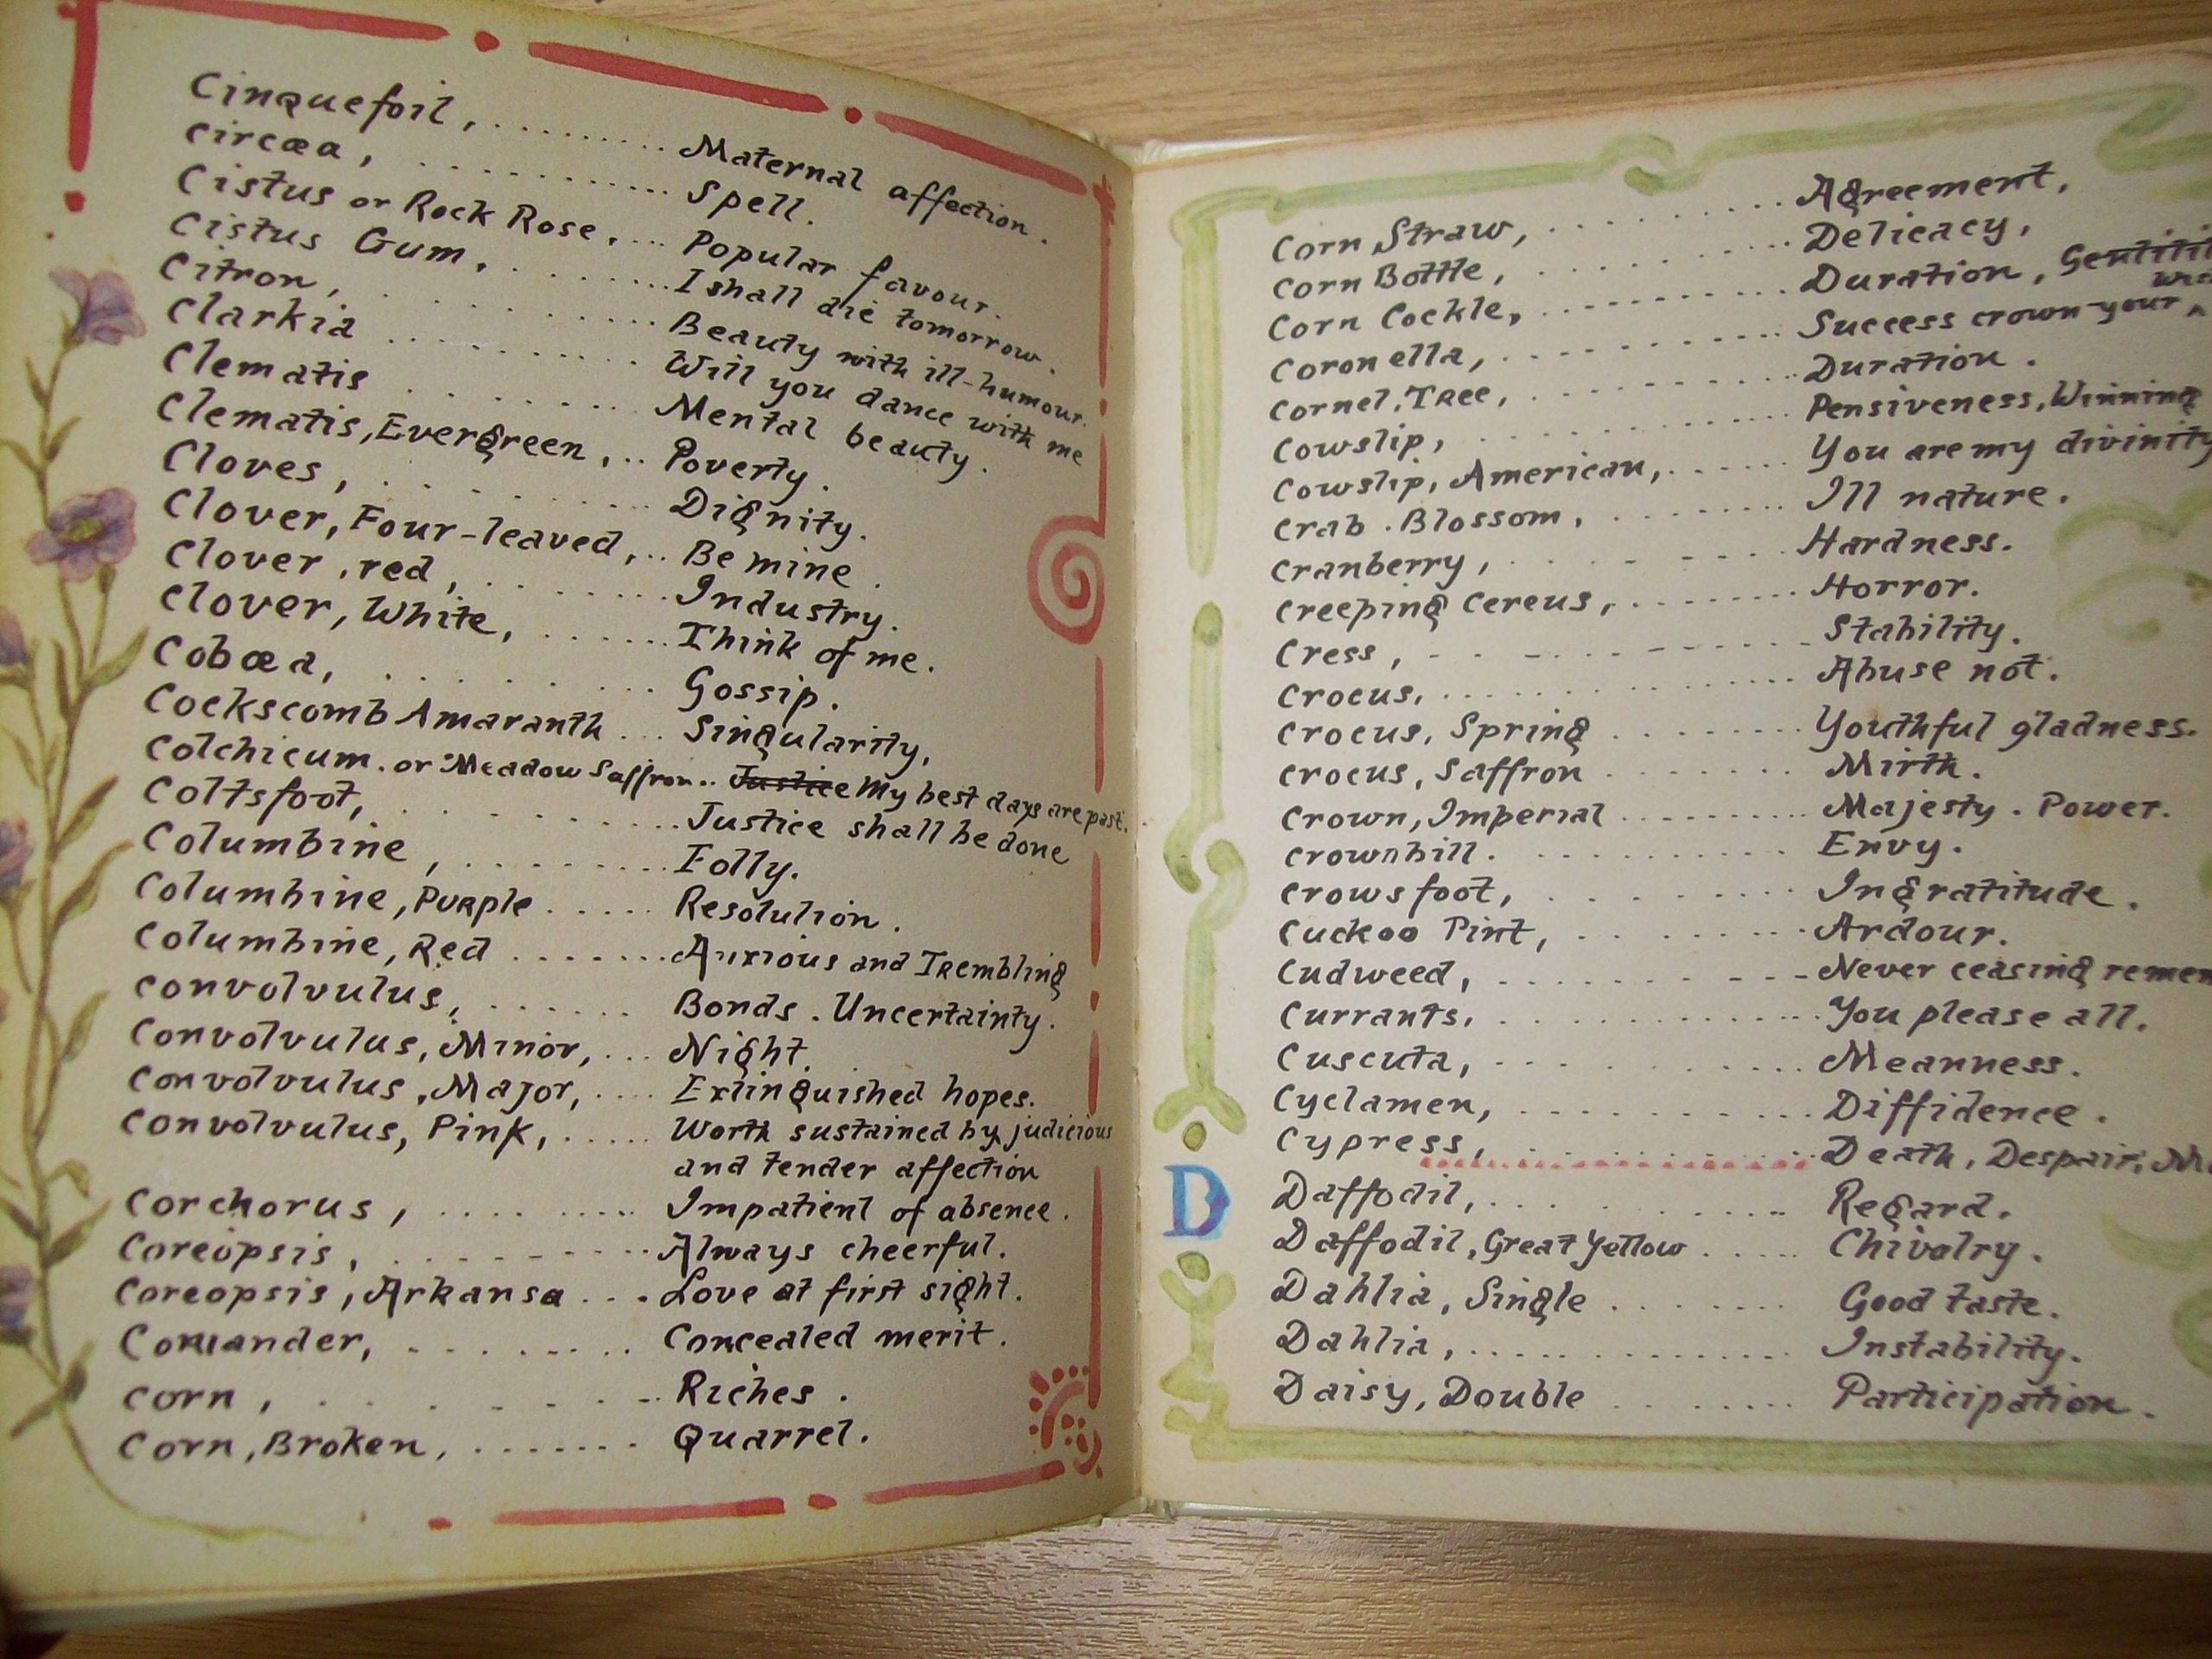 Cinquefoil, ......... Maternal affection.
Circæa, ........... Spell.
Cistus or Rock Rose, ... Popular favour.
Cistus Gum, ........ I shall die tomorrow.
Citron, ........... Beauty with ill-humour.
Clarkia .......... Will you dance with me
Clematis ......... Mental beauty.
Clematis, Evergreen, .. Poverty.
Cloves, .......... Dignity.
Clover, Four-leaved, .. Be mine.
Clover, red, ........ Industry.
Clover, White, ...... Think of me.
Cobæa, .......... Gossip.
Cockscomb Amaranth ... Singularity,
Colchicum. or Meadow Saffron .. Justice My best days are past.
Coltsfoot, ......... Justice shall be done
Columbine, ........ Folly.
Columbine, Purple ..... Resolution.
Columbine, Red ....... Anxious and Trembling
Convolvulus, ....... Bonds. Uncertainty.
Convolvulus, Minor, ... Night.
Convolvulus, Major, .... Extinguished hopes.
Convolvulus, Pink, ..... Worth sustained by judicious
and tender affection
Corchorus, ........ Impatient of absence.
Coreopsis, ......... Always cheerful.
Coreopsis, Arkansa ... Love at first sight.
Coriander, ........ Concealed merit.
Corn, ........ Riches.
Corn, Broken, ....... Quarrel.
Corn Straw, ......... Agreement,
Corn Bottle, ......... Delicacy,
Corn Cockle, ......... Duration,
Coronella, .......... Success crown your
Cornel, Tree, ......... Duration.
Cowslip, ........... Pensiveness, Winning
Cowslip, American, ...... You are my divinity
Crab. Blossom, ........ Ill nature.
Cranberry, .......... Hardness.
Creeping Cereus, ........ Horror.
Cress, ........... Stability.
Crocus, ............ Abuse not.
Crocus, Spring ........ Youthful gladness.
Crocus, Saffron ....... Mirth.
Crown, Imperial ......... Majesty. Power.
Crownbill. ........... Envy.
Crowsfoot, .......... Ingratitude.
Cuckoo Pint, ......... Ardour.
Cudweed, .......... Never ceasing remem
Currants, ............ You please all.
Cuscuta, .......... Meanness.
Cyclamen, .......... Diffidence.
Cypress, .......... Death, Despair,
D
Daffodil, .......... Regard.
Daffodil, Great Yellow ..... Chivalry.
Dahlia, Single ....... Good taste.
Dahlia, ............ Instability.
Daisy, Double ....... Participation.